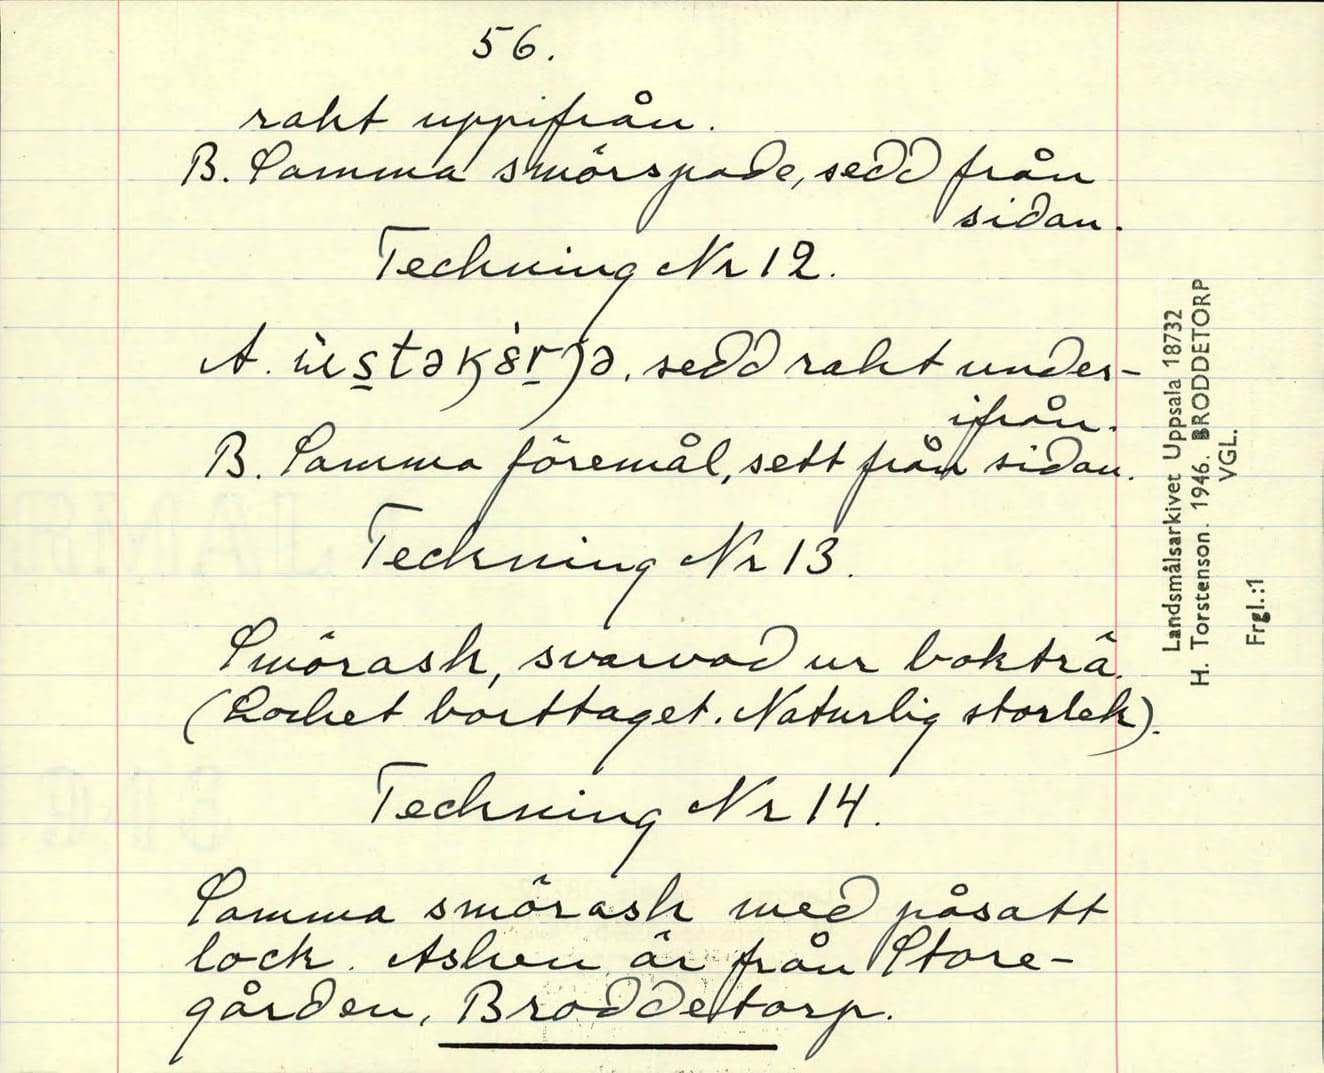 56.
rakt uppifrån.
B. Samma smörspade, sedd från
sidan.
Teckning Nr 12.
A. sedd rakt under-
ifrån.
B. Samma föremål, sett från sidan.
Teckning Nr 13.
Smörask, svarvad ur bokträ.
(Locket borttaget. Naturlig storlek).
Teckning Nr 14.
Samma smörask med påsatt
lock. Asken är från Store-
gården, Broddetorp.
Landsmålsarkivet Uppsala 18732
H. Torstenson. 1946. BRODDETORP
VGL.
Frgl.:1